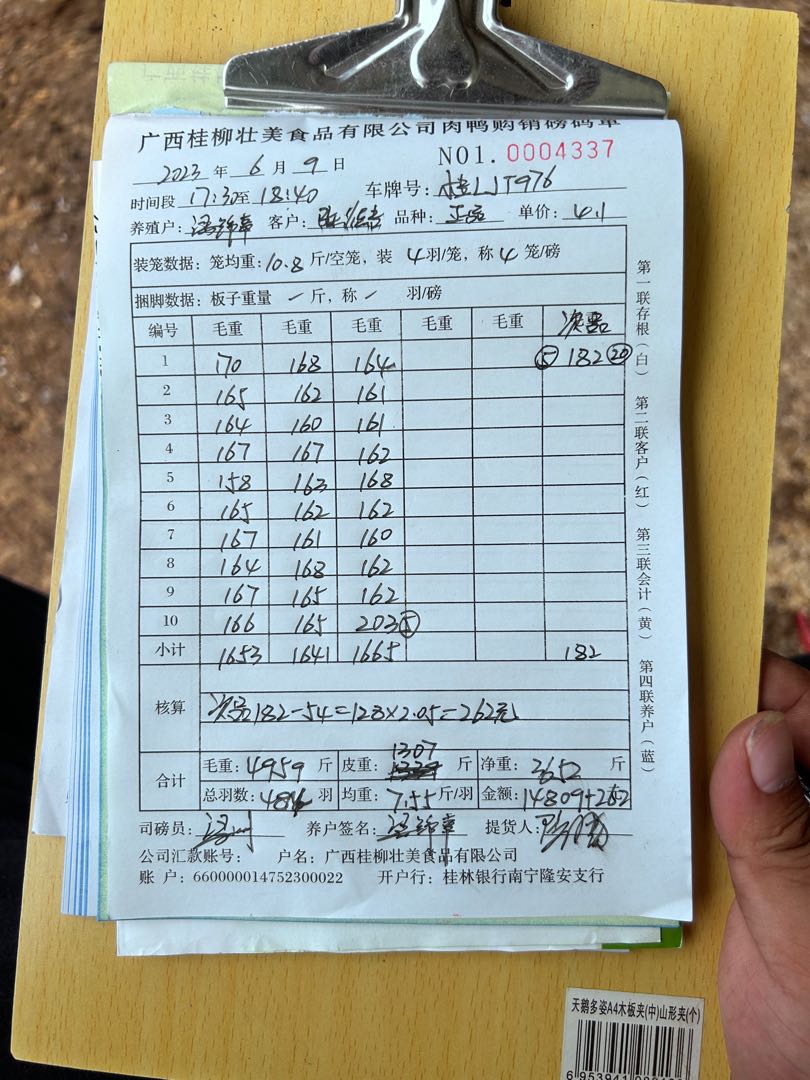 广西桂柳壮美食品有限公司肉鸭购销磅码单
2023 年 6 月 9 日 NO1. 0004337
时间段 17:30至 18:40 车牌号: 桂LJT976
养殖户: 客户: 品种: 正品 单价: 4.1
装笼数据: 笼均重: 10.8 斤/空笼, 装 4 羽/笼, 称 4 笼/磅
捆脚数据: 板子重量 — 斤, 称 — 羽/磅
编号 毛重 毛重 毛重 毛重 毛重 次品
1 170 168 164 ⑤ 182 ⑳
2 165 162 161
3 164 160 161
4 167 167 162
5 158 163 168
6 165 162 162
7 167 161 160
8 164 168 162
9 167 165 162
10 166 165 203 ⑤
小计 1653 1641 1665 182
核算 次品182-54=128×2.05=262元
合计 毛重: 4959 斤 皮重: 1307 斤 净重: 3652 斤
总羽数: 484 羽 均重: 7.55 斤/羽 金额: 14809+262
司磅员: 养户签名: 提货人:
公司汇款账号: 户名: 广西桂柳壮美食品有限公司
账 户: 660000014752300022 开户行: 桂林银行南宁隆安支行
第一联存根(白) 第二联客户(红) 第三联会计(黄) 第四联养户(蓝)
天鹅多姿A4木板夹(中)山形夹(个)
6 953941